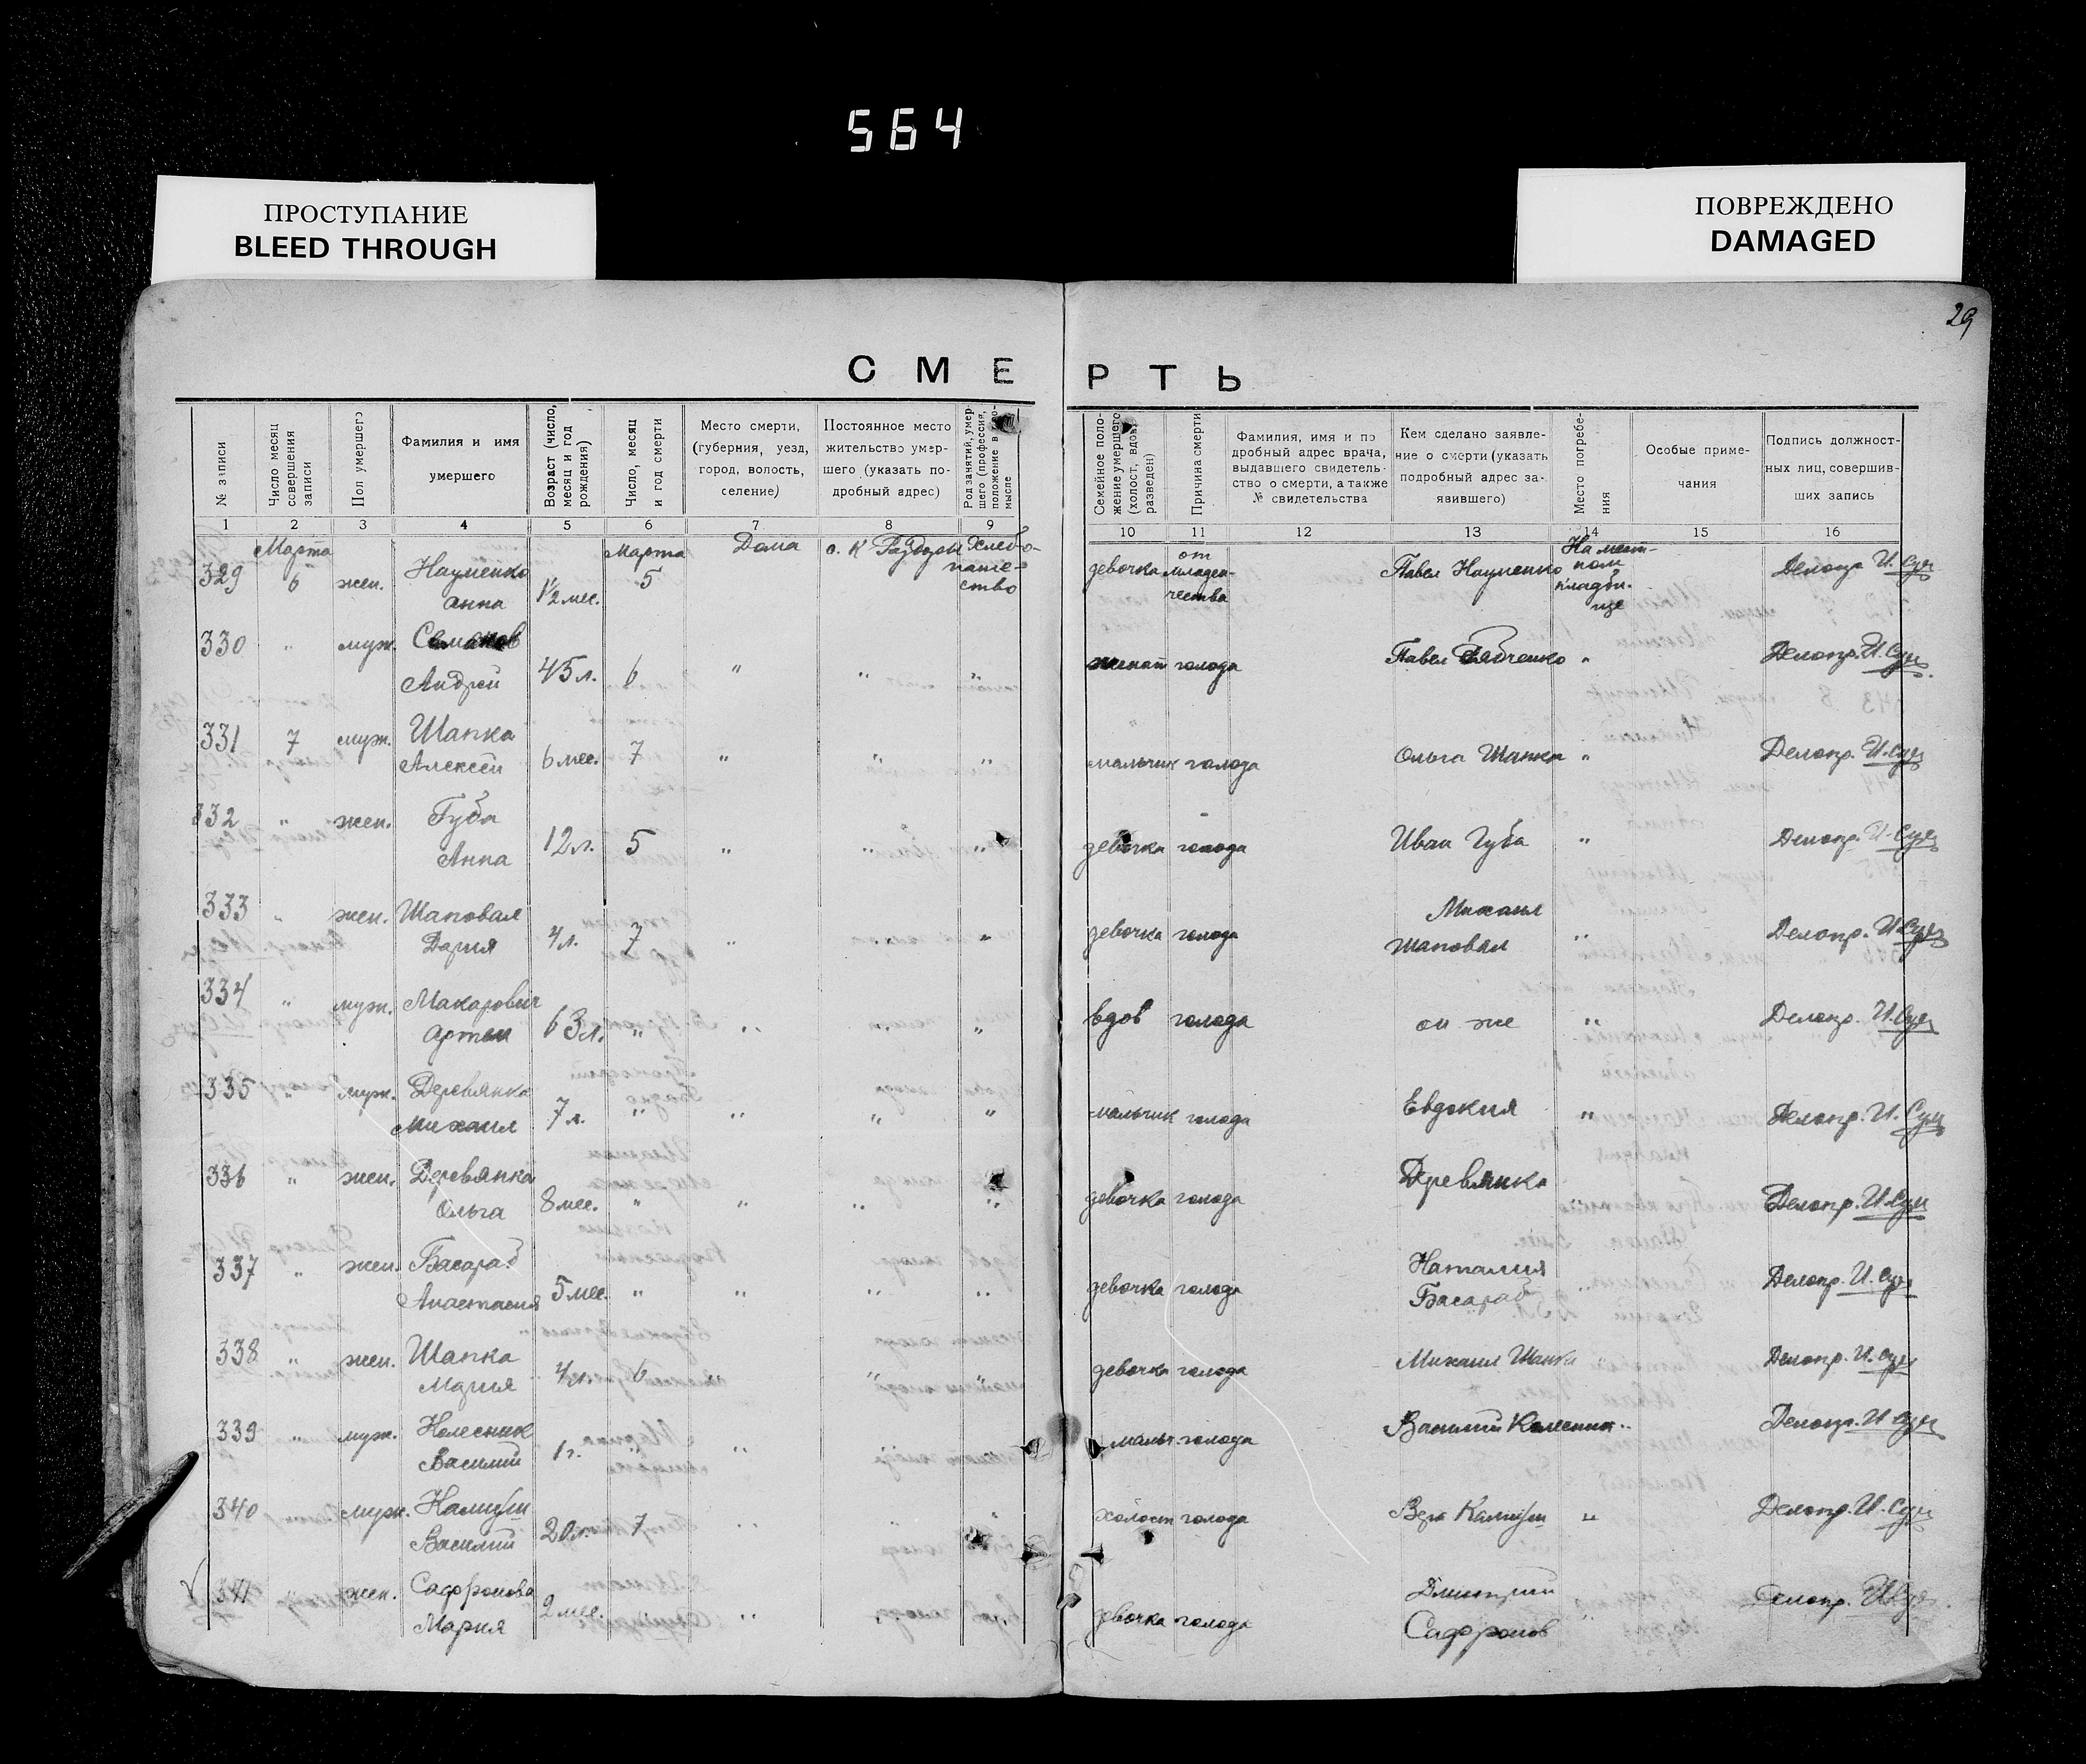 564
ПРОСТУПАНИЕ
BLEED THROUGH
ПОВРЕЖДЕНО
DAMAGED
29
СМЕРТЬ
№ записи
Число месяц совершения записи
Пол умершего
Фамилия и имя умершего
Возраст (число, месяц и год рождения)
Число, месяц и год смерти
Место смерти, (губерния, уезд, город, волость, селение)
Постоянное место жительство умершего (указать подробный адрес)
Род занятий, умершего (профессия, положение в
мысле
Семейное положение умершего (холост, вдов, разведен)
Причина смерти
Фамилия, имя и по дробный адрес врача, выдавшего свидетельство о смерти, а также № свидетельства
Кем сделано заявление о смерти (указать подробный адрес заявившего)
Место погребения
Особые примечания
Подпись должностных лиц, совершивших запись
1 2 3 4 5 6 7 8 9 10 11 12 13 14 15 16
329 Марта 6 жен. Науменко Анна 1½ мес. Марта 5 Дома Хлебопашество девочка от младенчества Павел Науменко На мест- кладбище Делопр. И. Сух
330 " муж. Андрей 45 л. 6 " " " женат голода Павел " Делопр. И. Сух
331 7 муж. Шапка Алексей 6 мес. 7 " " " мальчик голода Ольга Шапка " Делопр. И. Сух
332 " жен. Губа Анна 12 л. 5 " " " девочка голода Иван Губа " Делопр. И. Сух
333 " жен. Шаповал Дария 4 л. 7 " " " девочка голода Михаил Шаповал " Делопр. И. Сух
334 " муж. Макарович Артем 63 л. " " " " вдов голода он же " Делопр. И. Сух
335 " муж. Деревянка Михаил 7 л. " " " " мальчик голода Евдокия " Делопр. И. Сух
336 " жен. Деревянка Ольга 8 мес. " " " " девочка голода Деревянка " Делопр. И. Сух
337 " жен. Басараб Анастасия 5 мес. " " " " девочка голода Наталия Басараб " Делопр. И. Сух
338 " жен. Шапка Мария 4 л. 6 " " " девочка голода Михаил Шапка " Делопр. И. Сух
339 " муж. Колесник Василий 1 г. " " " мальч голода Василий Колесник " Делопр. И. Сух
340 муж. Василий 20 л. 7 " " " холост голода " Делопр. И. Сух
341 " жен. Сафронова Мария 2 мес. " " " " девочка голода Дмитрий Сафронов " Делопр. И. Сух